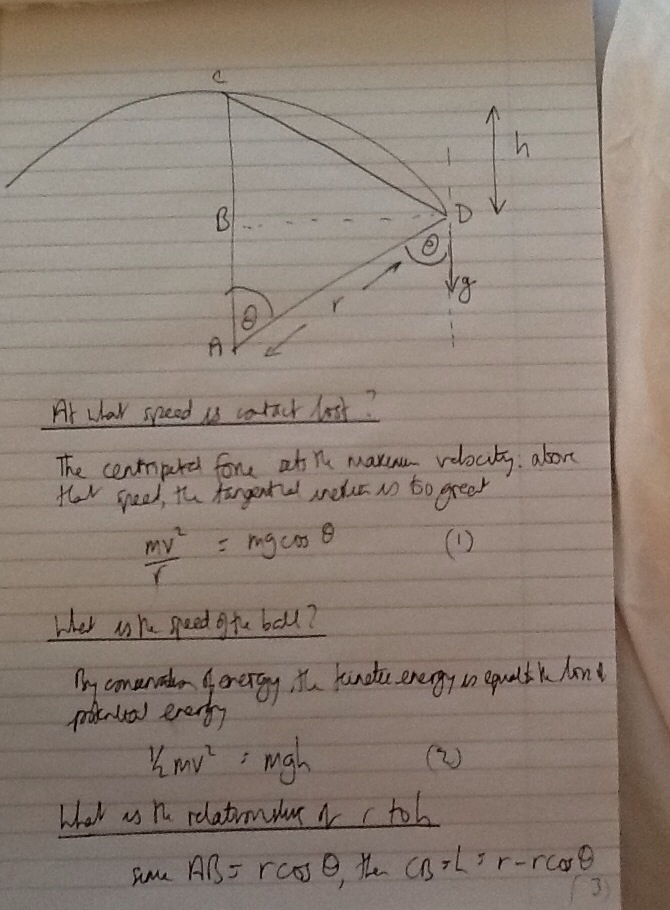 C
h
B
D
θ
g
r
θ
A
At what speed is contact lost?
The centripetal force sets the maximum velocity: above
that speed, the tangential is too great
mv²/r = mg cos θ (1)
What is the speed of the ball?
By conservation of energy, the kinetic energy is equal to the loss of
potential energy
½mv² = mgh (2)
What is the relationship of r to h
since AB = r cos θ, then CB = h = r - r cos θ
(3)